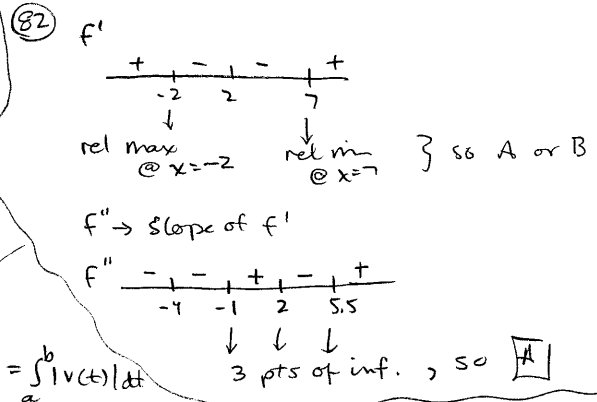 82
f'
+ - - +
-2 2 7
↓ ↓
rel max rel min } so A or B
@ x=-2 @ x=7
f" → slope of f'
f" - - + - +
-4 -1 2 5.5
↓ ↓ ↓
= ∫ₐᵇ |v(t)| dt 3 pts of inf. , so A